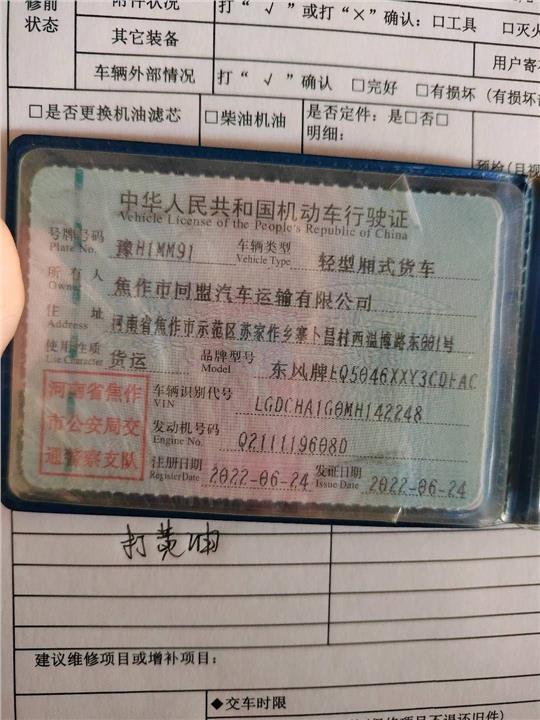 修前
状态
附件状况
打“√”或打“×”确认:□工具 □灭火
其它装备
用户寄存
车辆外部情况
打“√”确认 □完好 □有损坏 (有损坏
□是否更换机油滤芯
□柴油机油
是否定件: 是□否□
明细:
预检(目视
中华人民共和国机动车行驶证
Vehicle License of the People's Republic of China
号牌号码 豫H1MM91 车辆类型 轻型厢式货车
Plate No. Vehicle Type
所有人 焦作市同盟汽车运输有限公司
Owner
住址 河南省焦作市示范区苏家作乡寨卜昌村西温博路东001号
Address
使用性质 货运 品牌型号 东风牌EQ5046XXY3CDFAC
Use Character Model
河南省焦作
市公安局交
通警察支队
车辆识别代号 LGDCHA1G0MH142248
VIN
发动机号码 Q211119608D
Engine No.
注册日期 2022-06-24 发证日期 2022-06-24
Register Date Issue Date
打黄油
建议维修项目或增补项目:
◆交车时限